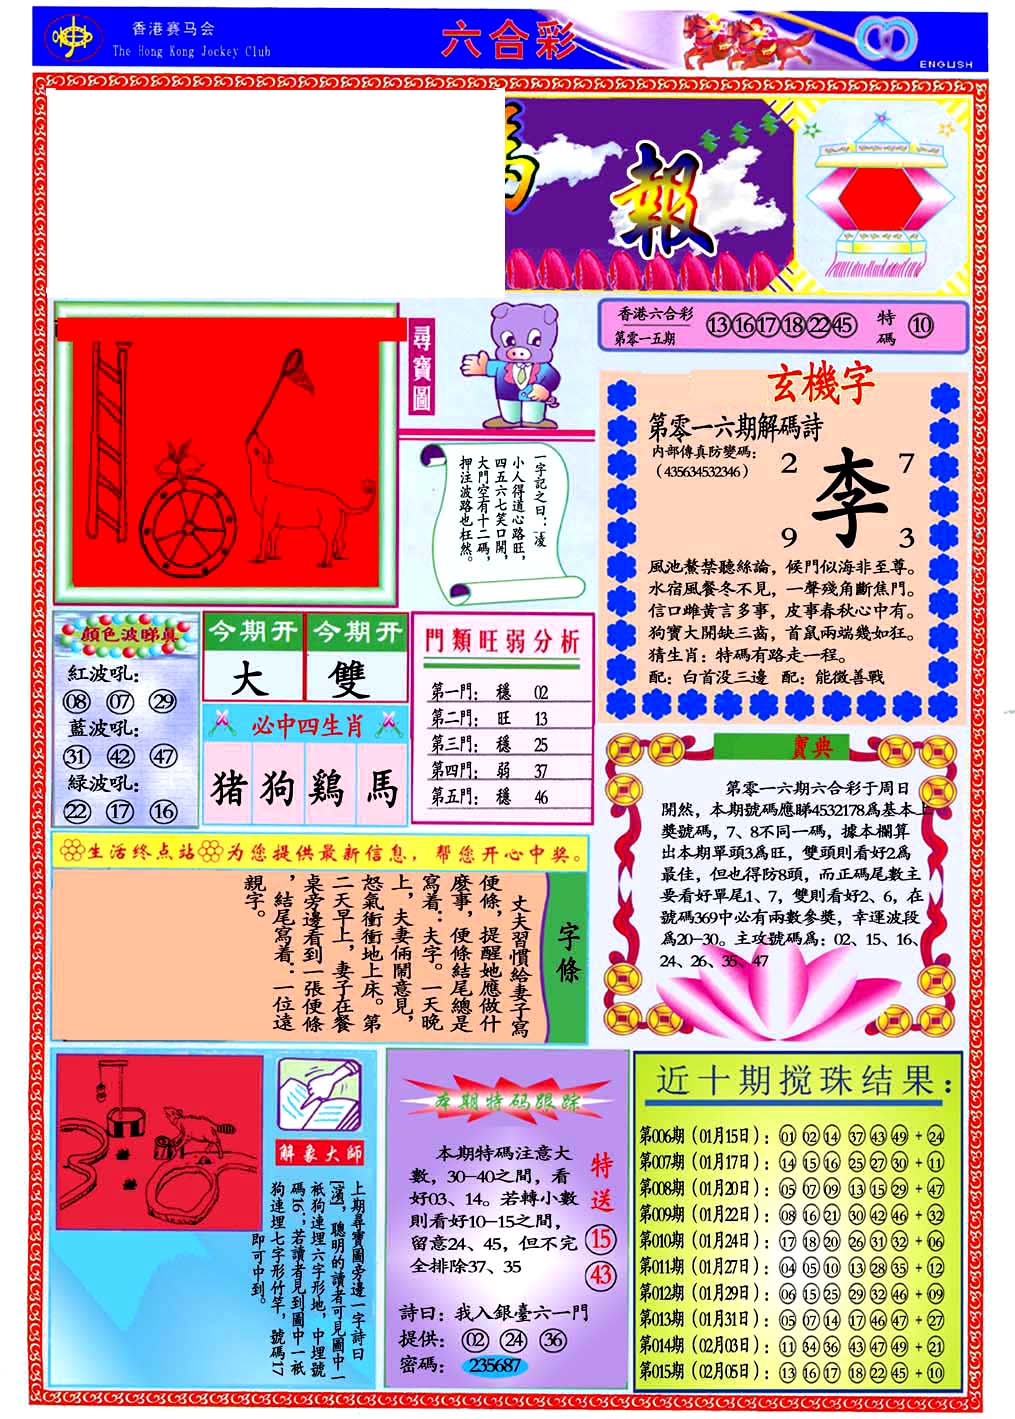 香港赛马会
The Hong Kong Jockey Club
六合彩
ENGLISH
報
尋寶圖
一字記之曰：凌
小人得道心路旺，
四五六七笑口開，
大門空有十二碼，
押注波路也枉然。
香港六合彩
第零一五期
13 16 17 18 22 45
特碼
10
玄機字
第零一六期解碼詩
内部傳真防變碼：
（435634532346）
2 7
李
9 3
風池鰲禁聽絲論，候門似海非至尊。
水宿風餐冬不見，一聲殘角斷焦門。
信口雌黄言多事，皮事春秋心中有。
狗寶大開缺三齒，首鼠兩端幾如狂。
猜生肖：特碼有路走一程。
配：白首没三邊 配：能微善戰
顏色波睇真
紅波吼：
08 07 29
藍波吼：
31 42 47
緑波吼：
22 17 16
今期开 今期开
大 雙
必中四生肖
猪 狗 鷄 馬
門類旺弱分析
第一門： 穩 02
第二門： 旺 13
第三門： 穩 25
第四門： 弱 37
第五門： 穩 46
寶典
第零一六期六合彩于周日
開然，本期號碼應睇4532178爲基本上
獎號碼，7、8不同一碼，據本欄算
出本期單頭3爲旺，雙頭則看好2爲
最佳，但也得防8頭，而正碼尾數主
要看好單尾1、7，雙則看好2、6，在
號碼369中必有兩數參獎，幸運波段
爲20-30。主攻號碼爲：02、15、16、
24、26、35、47
生活终点站 为您提供最新信息，帮您开心中奖。
字條
丈夫習慣給妻子寫
便條，提醒她應做什
麽事，便條結尾總是
寫着：夫字。一天晚
上，夫妻倆鬧意見，
怒氣衝衝地上床。第
二天早上，妻子在餐
桌旁邊看到一張便條
，結尾寫着：一位遠
親字。
解象大師
上期尋寶圖旁邊一字詩曰
[濱]，聰明的讀者可見圖中一
衹狗連埋六字形地，中埋號
碼16；若讀者見到圖中一衹
狗連埋七字形竹竿，號碼17
即可中到。
本期特码跟踪
本期特码注意大
數，30-40之間，看
好03、14。若轉小數
則看好10-15之間，
留意24、45，但不完
全排除37、35
特送
15
43
詩曰：我入銀臺六一門
提供： 02 24 36
密碼： 235687
近十期搅珠结果：
第006期（01月15日）：01 02 14 37 43 49 + 24
第007期（01月17日）：14 15 16 25 27 30 + 11
第008期（01月20日）：05 07 09 13 15 29 + 47
第009期（01月22日）：08 16 21 30 42 46 + 32
第010期（01月24日）：17 18 20 26 31 32 + 06
第011期（01月27日）：04 05 10 13 28 35 + 12
第012期（01月29日）：06 15 25 29 32 46 + 09
第013期（01月31日）：05 07 14 17 46 47 + 27
第014期（02月03日）：11 34 36 43 47 49 + 21
第015期（02月05日）：13 16 17 18 22 45 + 10